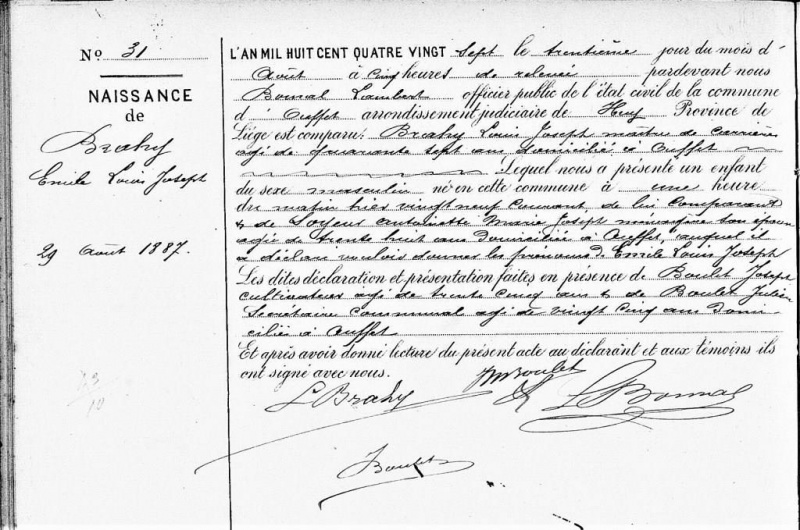 No 31
NAISSANCE
de
Brahy
Emile Louis Joseph
29 Août 1887.
L'AN MIL HUIT CENT QUATRE VINGT sept le trentième jour du mois d'
Août à cinq heures de relevée pardevant nous
Bonmal Lambert officier public de l'état civil de la commune
d' Ouffet arrondissement judiciaire de Huy Province de
Liége est comparu: Brahy Louis Joseph maître de carrière
agé de quarante sept ans domicilié à Ouffet
Lequel nous a présenté un enfant
du sexe masculin né en cette commune à une heure
du matin hier vingt neuf courant de lui comparant
& de Loyeux Antoinette Marie Joseph ménagère son épouse
agée de trente huit ans domiciliée à Ouffet, auquel il
a déclaré vouloir donner les prénoms d'Emile Louis Joseph
Les dites déclaration et présentation faites en présence de Boulet Joseph
cultivateur agé de trente cinq ans & de Boulet Julien
Secrétaire communal agé de vingt cinq ans domi-
ciliés à Ouffet
Et après avoir donné lecture du présent acte au déclarant et aux témoins ils
ont signé avec nous.
L Brahy
Boulet
L Bonmal
Boulet